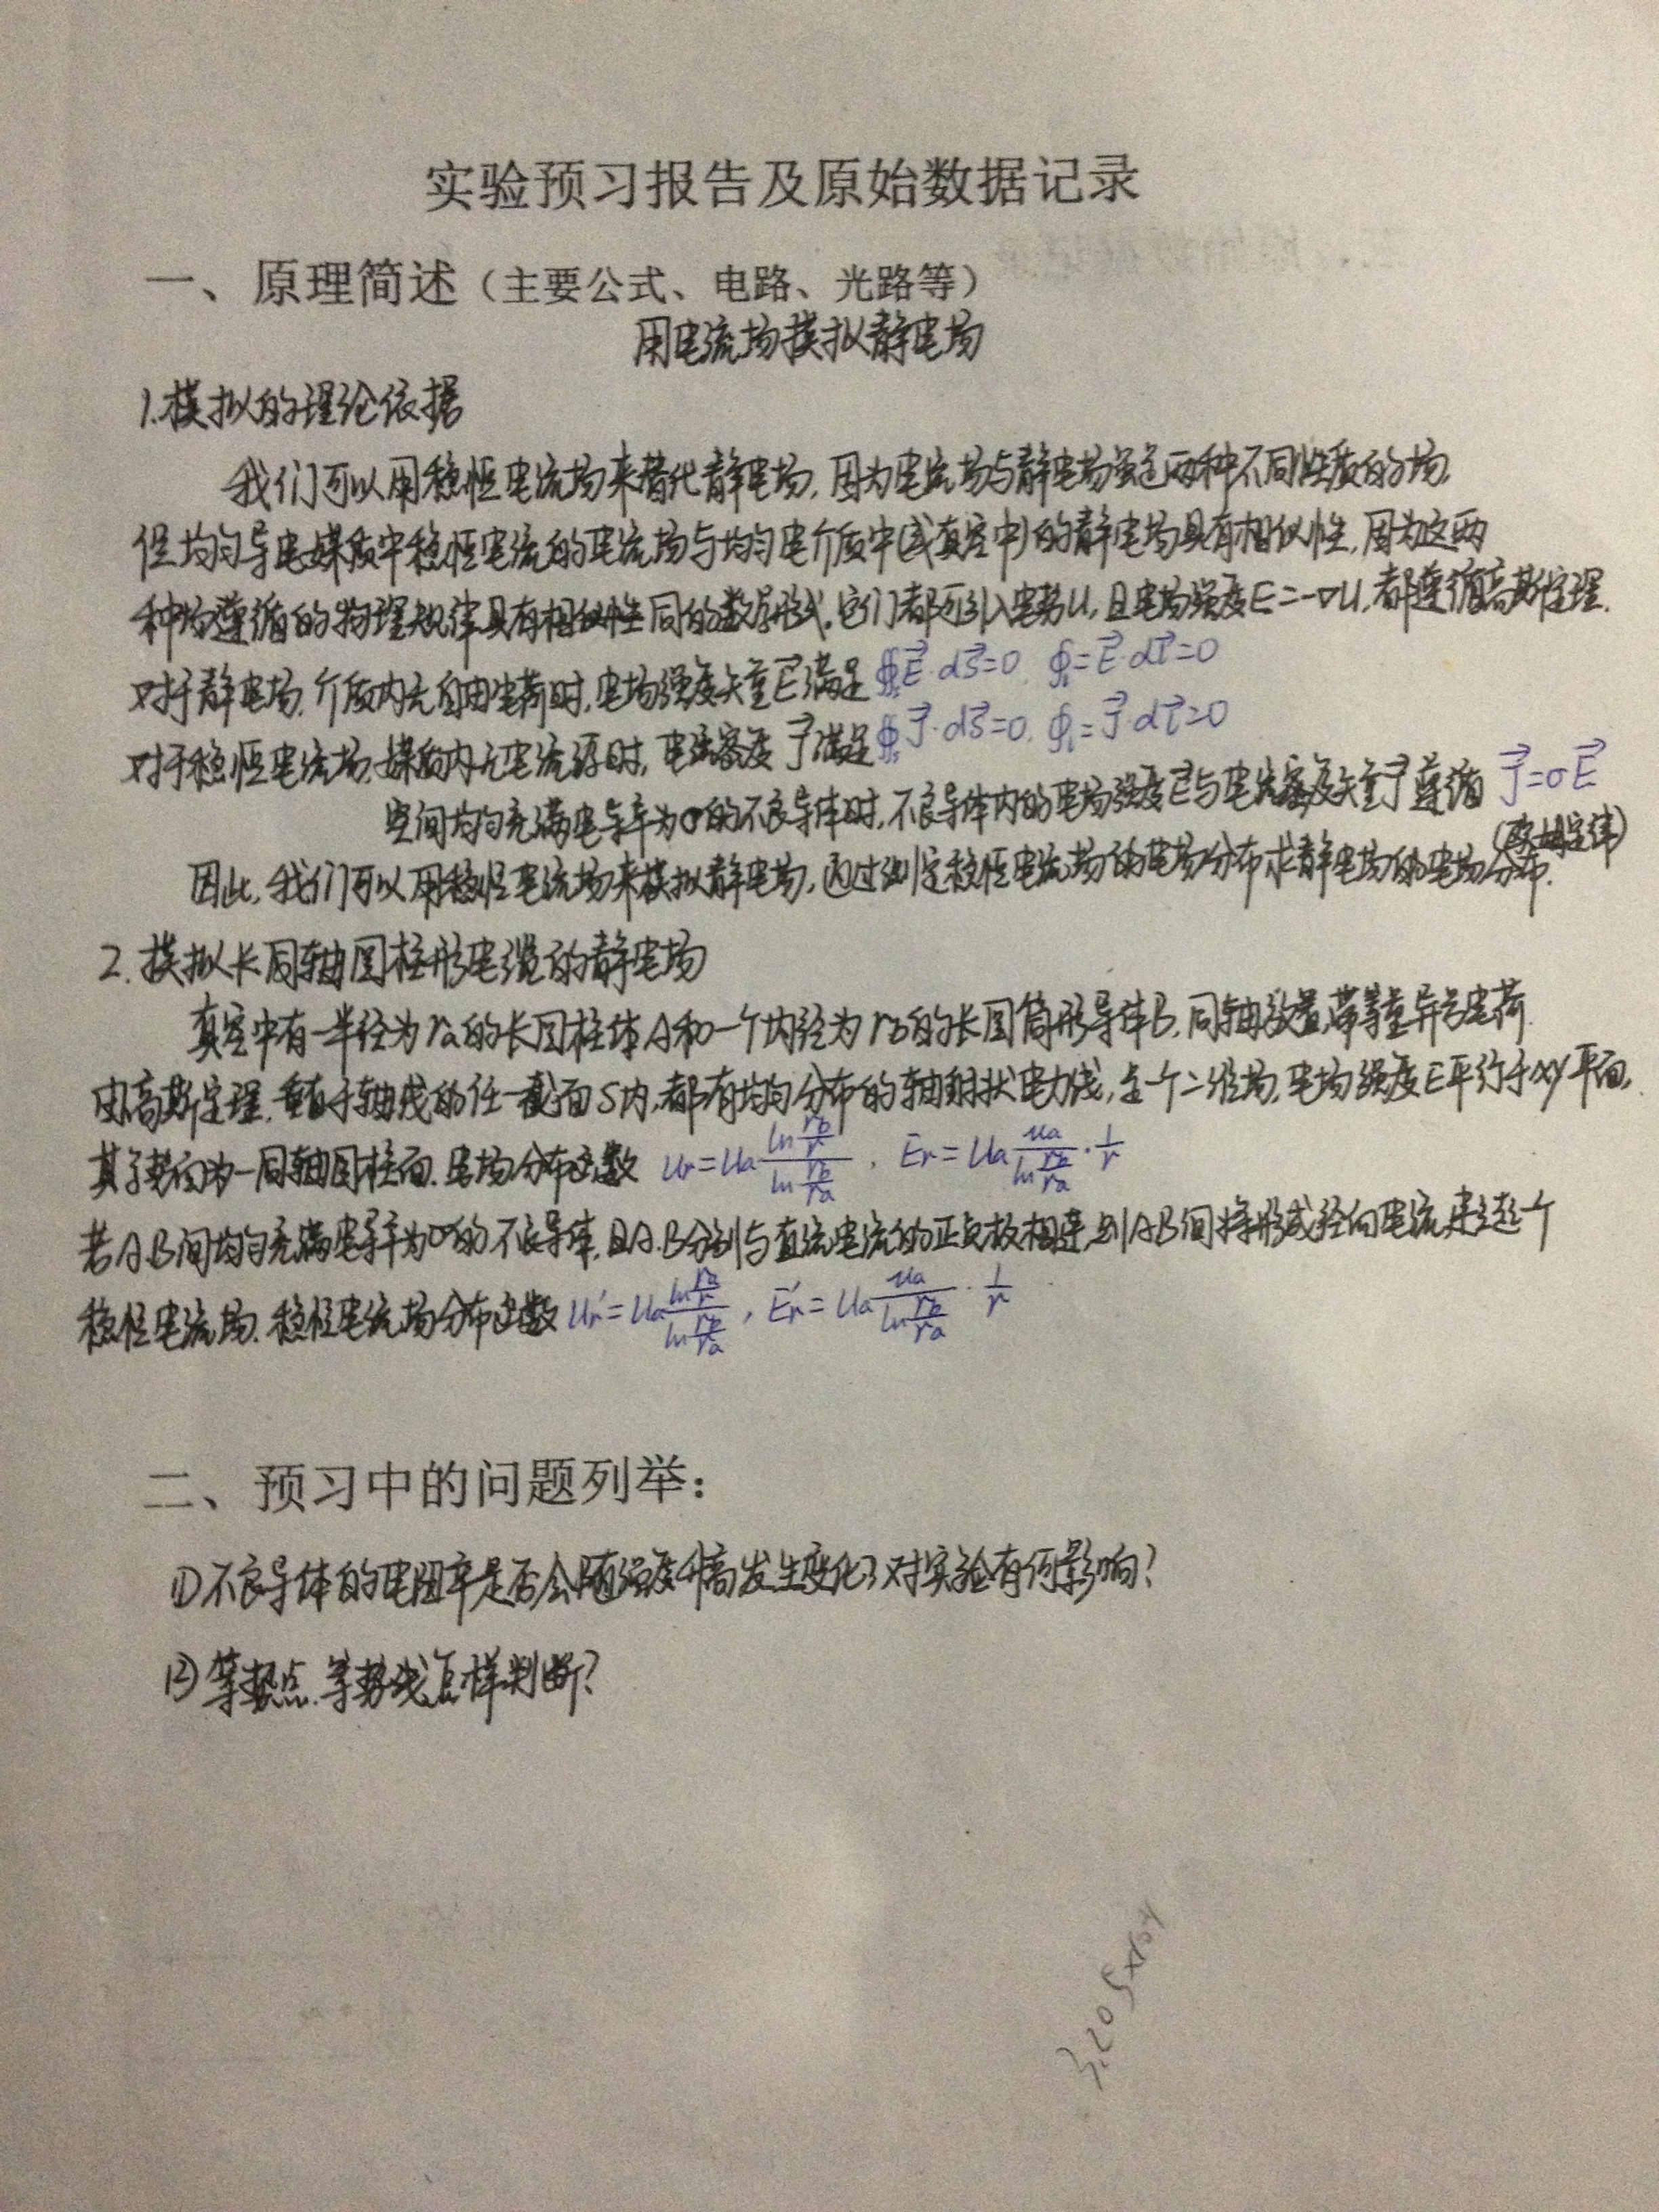 实验预习报告及原始数据记录
一、原理简述（主要公式、电路、光路等）
用电流场模拟静电场
1.模拟的理论依据
我们可以用稳恒电流场来替代静电场，因为电流场与静电场虽是两种不同性质的场，
但均匀导电媒质中稳恒电流的电流场与均匀电介质中(或真空中)的静电场具有相似性，因为这两
种场遵循的物理规律具有相似性同的数学形式，它们都可引入电势U，且电场强度E=-▽U，都遵循高斯定理．
对于静电场，介质内无自由电荷时，电场强度矢量E⃗满足∯ₛE⃗·dS⃗=0，∮ₗ=E⃗·dl⃗=0
对于稳恒电流场，媒质内无电流源时，电流密度 j⃗满足∯ₛj⃗·dS⃗=0，∮ₗ=j⃗·dl⃗=0
空间均匀充满电导率为σ的不良导体时，不良导体内的电场强度E⃗与电流密度矢量j⃗遵循 j⃗=σE⃗
(欧姆定律)
因此，我们可以用稳恒电流场来模拟静电场，通过测定稳恒电流场的电场分布求静电场的电场分布．
2.模拟长同轴圆柱形电缆的静电场
真空中有一半径为ra的长圆柱体A和一个内径为rb的长圆筒形导体B，同轴放置，带等量异号电荷
由高斯定理，垂直于轴线的任一截面S内，都有均匀分布的辐射状电力线，是个二维场，电场强度E平行于xy平面，
其等势面为一同轴圆柱面．电场分布函数 Ur=Ua ln(rb/r)/ln(rb/ra)，Er=Ua ua/ln(rb/ra)·1/r
若A.B间均匀充满电导率为σ的不良导体，且A.B分别与直流电流的正负极相连，则AB间将形成径向电流，建立起一个
稳恒电流场．稳恒电流场分布函数 Ur′=Ua ln(rb/r)/ln(rb/ra)，Er′=Ua ua/ln(rb/ra)·1/r
二、预习中的问题列举：
①不良导体的电阻率是否会随温度升高发生变化？对实验有何影响？
②等势点．等势线怎样判断？